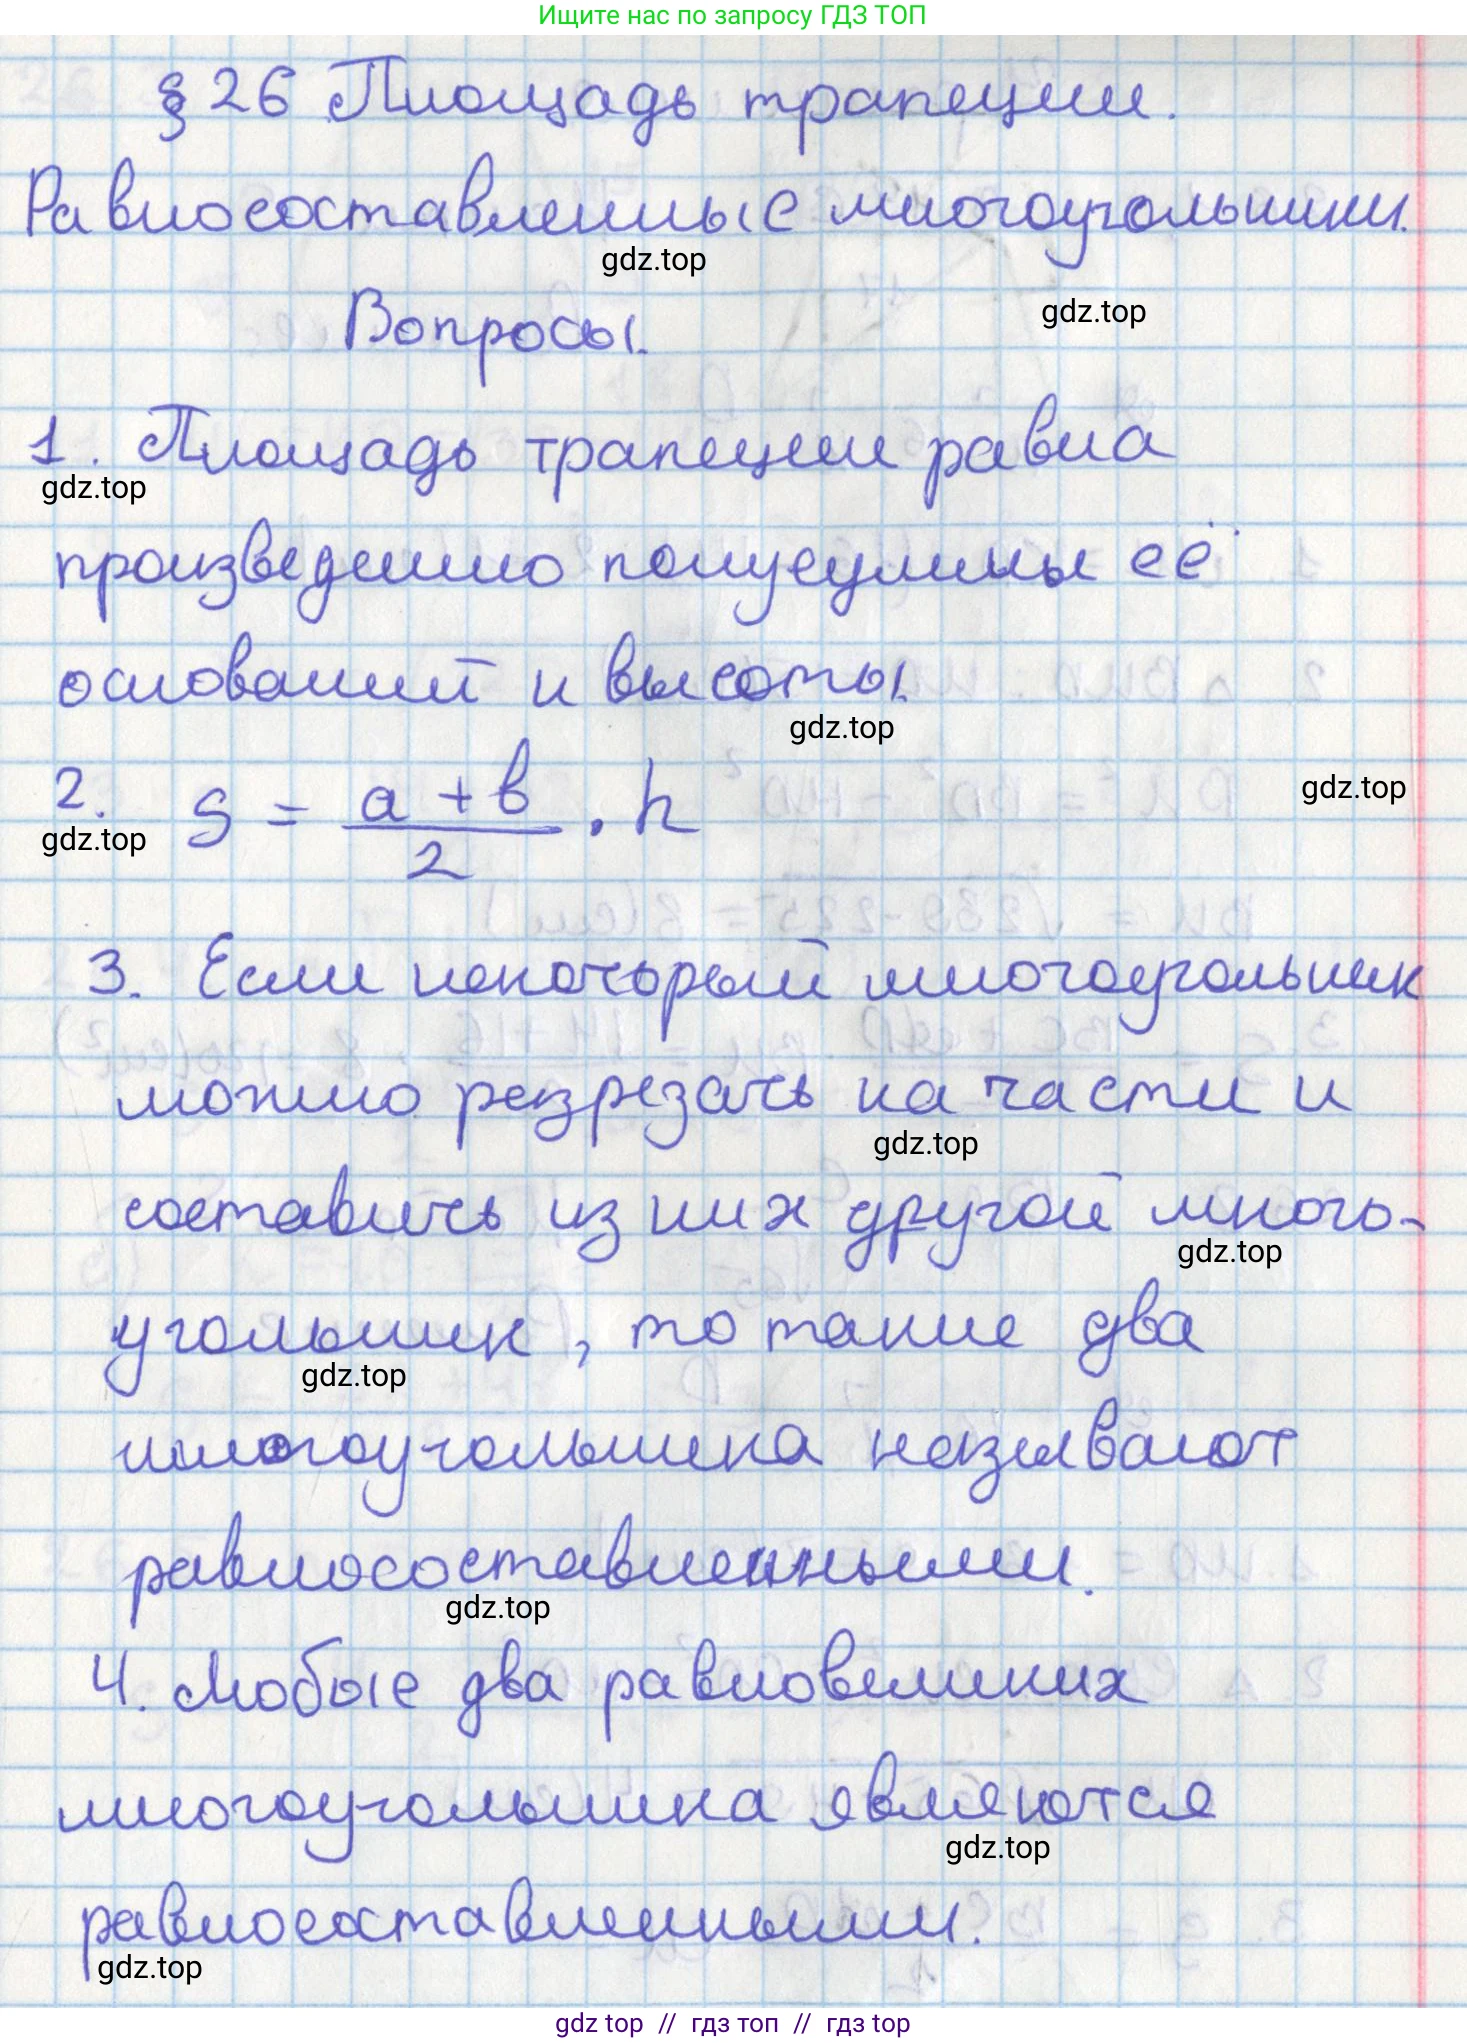 Ищите нас по запросу ГДЗ ТОП
§ 26 Площадь трапеции.
Равносоставленные многоугольники.
gdz.top
gdz.top
Вопросы.
1. Площадь трапеции равна
gdz.top
произведению полусуммы её
оснований и высоты.
gdz.top
2. S = \frac{a+b}{2} · h
gdz.top
gdz.top
3. Если некоторый многоугольник
можно разрезать на части и
gdz.top
составить из них другой много-
gdz.top
угольник, то такие два
gdz.top
многоугольника называют
равносоставленными.
gdz.top
4. Любые два равновеликих
многоугольника являются
gdz.top
равносоставленными.
gdz.top
gdz top // гдз топ // гдз top